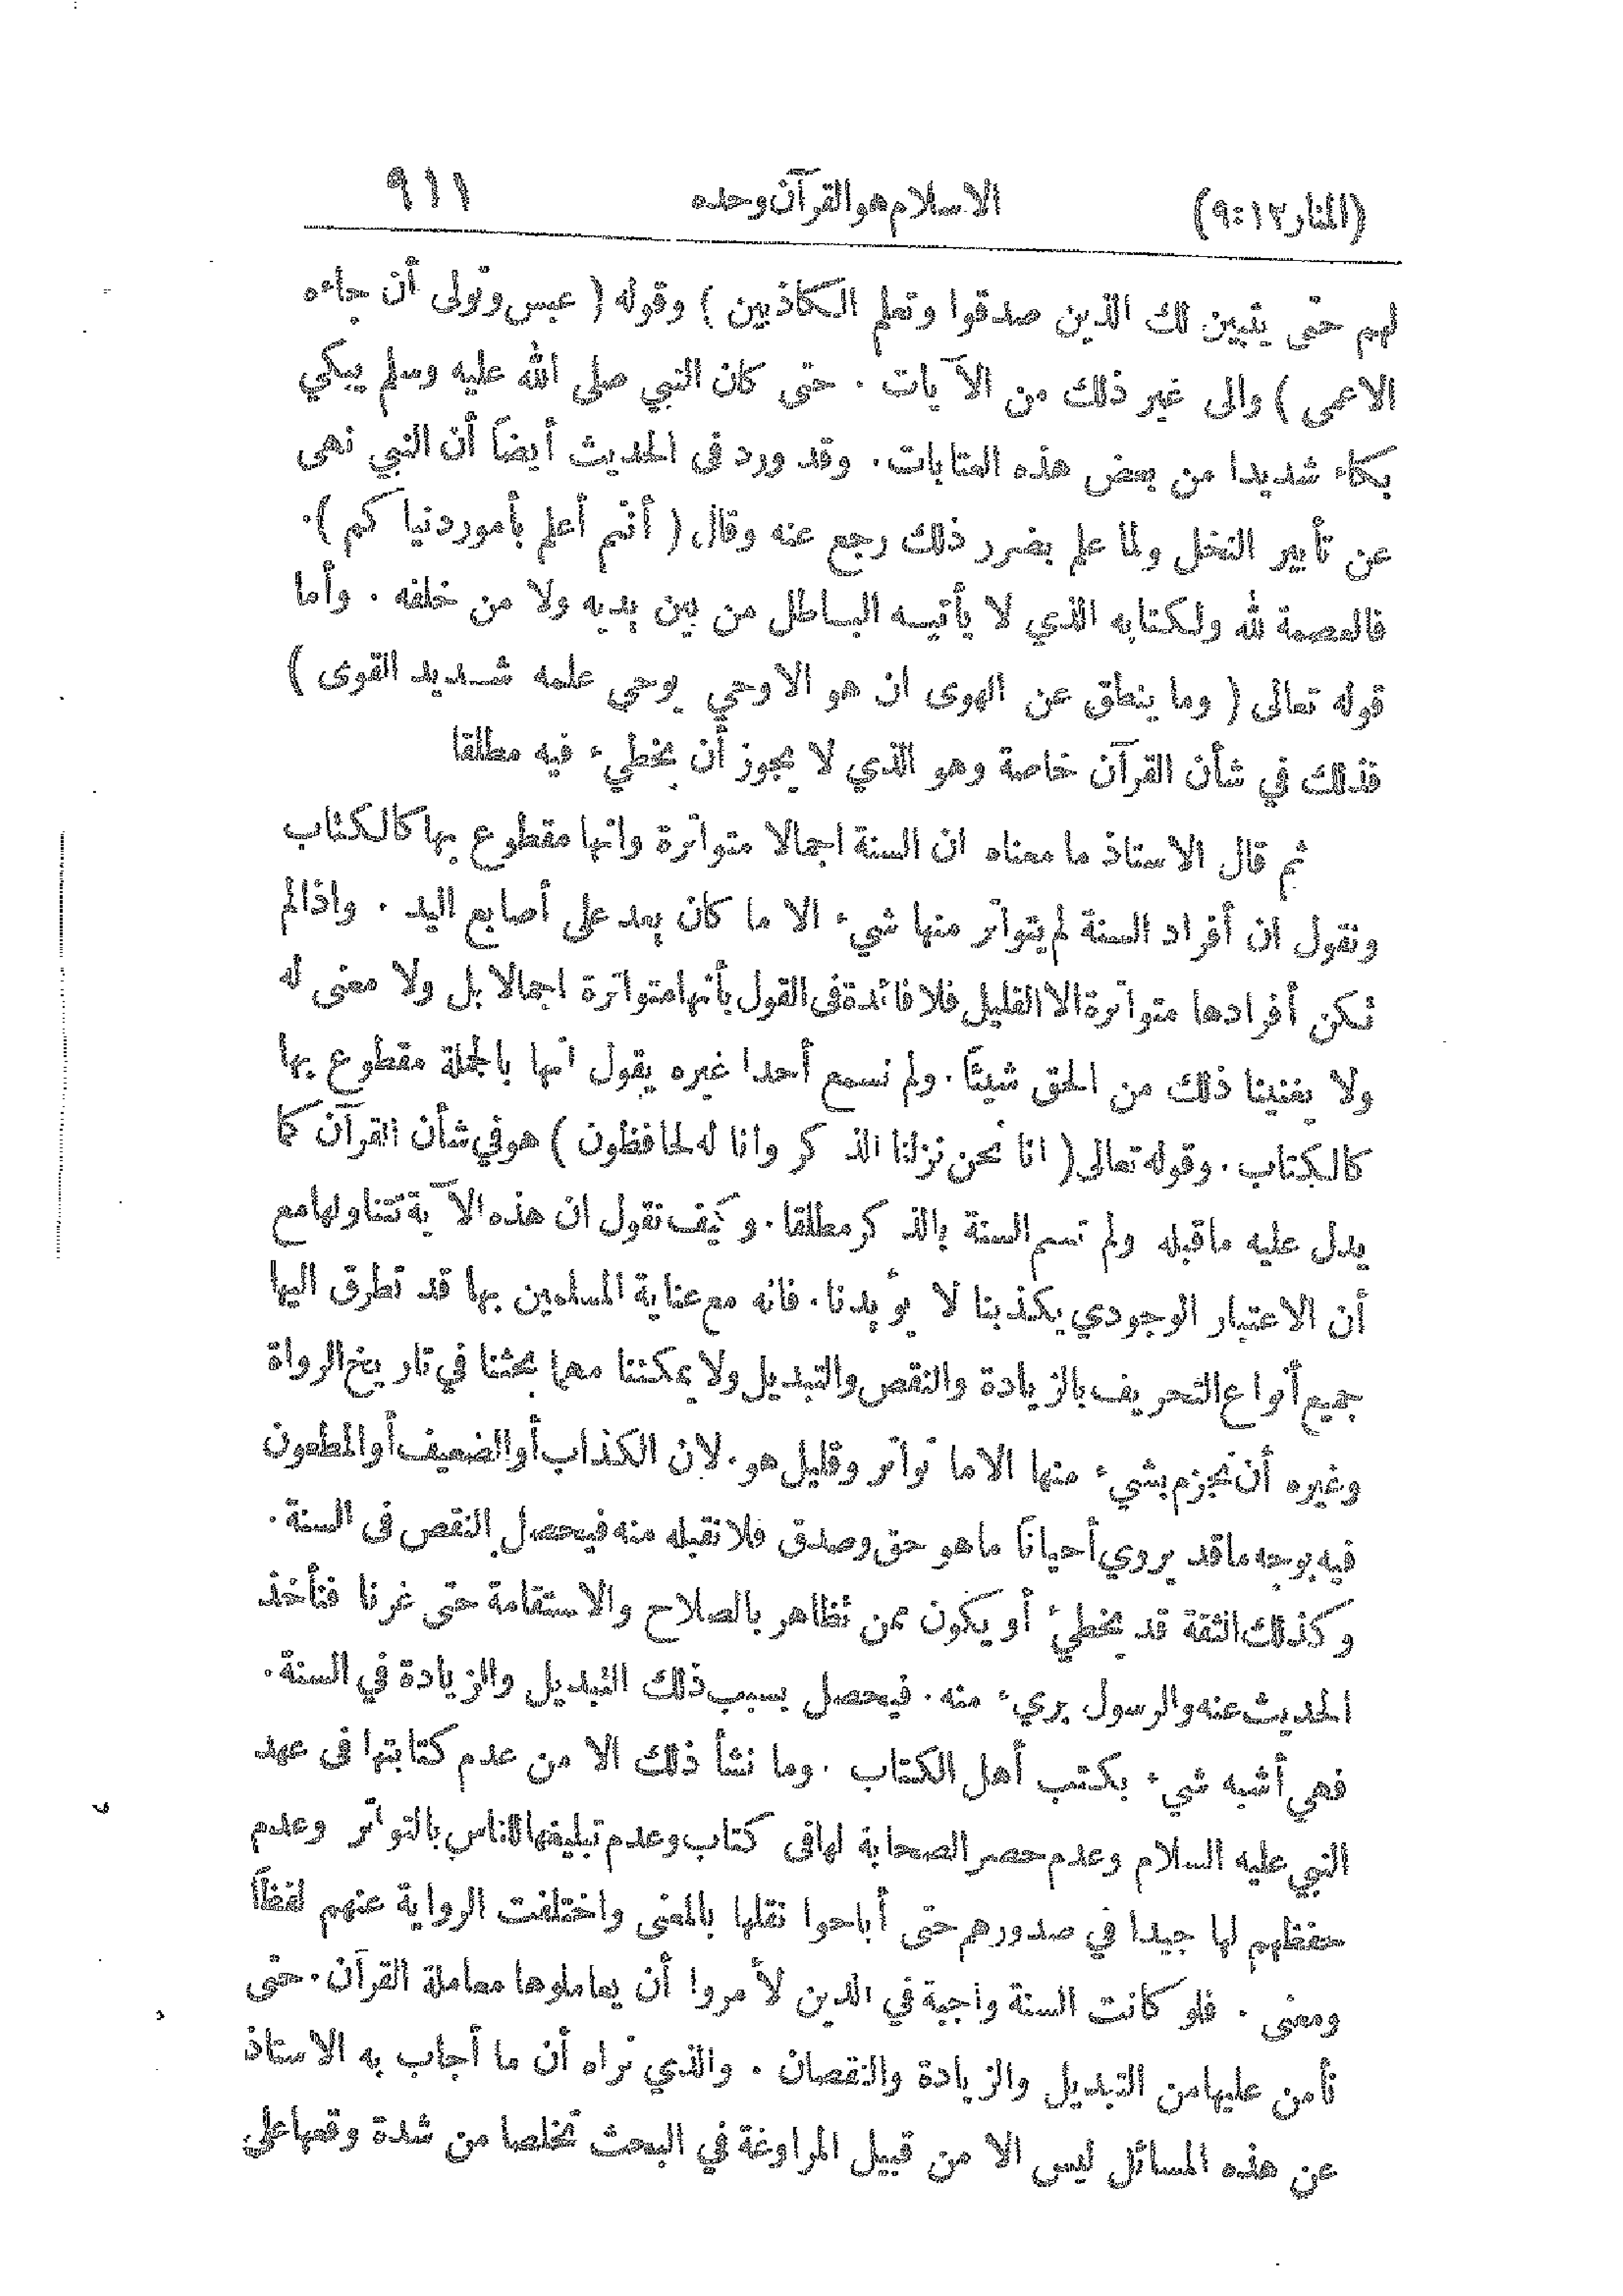 (المنار ١٢ : ٩) الاسلام هو القرآن وحده ٩١١
لهم حتى يتبين لك الذين صدقوا وتعلم الكاذبين ) وقوله ( عبس وتولى أن جاءه
الاعمى ) والى غير ذلك من الآيات . حتى كان النبي صلى الله عليه وسلم يبكي
بكاء شديدا من بعض هذه المتابات . وقد ورد في الحديث أيضاً أن النبي نهى
عن تأبير النخل ولما علم بضرر ذلك رجع عنه وقال ( أنتم أعلم بأمور دنياكم ) .
فالعصمة لله ولكتابه الذي لا يأتيه الباطل من بين يديه ولا من خلفه . وأما
قوله تعالى ( وما ينطق عن الهوى ان هو الا وحي يوحي علمه شديد القوى )
فذلك في شأن القرآن خاصة وهو الذي لا يجوز أن يخطيء فيه مطلقا
ثم قال الاستاذ ما معناه ان السنة اجمالا متواترة وانها مقطوع بها كالكتاب
ونقول ان أفراد السنة لم يتواتر منها شيء الا ما كان يعد على أصابع اليد . واذا لم
تكن أفرادها متواترة الا القليل فلا فائدة في القول بأنها متواترة اجمالا بل ولا معنى له
ولا يغنينا ذلك من الحق شيئاً . ولم نسمع أحدا غيره يقول انها بالجملة مقطوع بها
كالكتاب . وقوله تعالى ( انا نحن نزلنا الذكر وانا له لحافظون ) هو في شأن القرآن كما
يدل عليه ما قبله ولم تسم السنة بالذكر مطلقا . وكيف نقول ان هذه الآية تتناولها مع
أن الاعتبار الوجودي يكذبنا لا يؤيدنا . فانه مع عناية المسلمين بها قد تطرق اليها
جميع أنواع التحريف بالزيادة والنقص والتبديل ولا يمكننا مهما بحثنا في تاريخ الرواة
وغيره أن نجزم بشيء منها الا ما تواتر وقليل هو . لان الكذاب أو الضعيف أو المطعون
فيه بوجه ما قد يروي أحياناً ما هو حق وصدق فلا نقبله منه فيحصل النقص في السنة .
وكذلك الثقة قد يخطئ أو يكون ممن تظاهر بالصلاح والاستقامة حتى غرنا فنأخذ
الحديث عنه والرسول بريء منه . فيحصل بسبب ذلك التبديل والزيادة في السنة .
فهي أشبه شيء بكتب أهل الكتاب . وما نشأ ذلك الا من عدم كتابتها في عهد
النبي عليه السلام وعدم حصر الصحابة لها في كتاب وعدم تبليغها للناس بالتواتر وعدم
حفظهم لها جيدا في صدورهم حتى أباحوا نقلها بالمعنى واختلفت الرواية عنهم لفظاً
ومعنى . فلو كانت السنة واجبة في الدين لأمروا أن يعاملوها معاملة القرآن . حتى
نأمن عليها من التبديل والزيادة والنقصان . والذي نراه أن ما أجاب به الاستاذ
عن هذه المسائل ليس الا من قبيل المراوغة في البحث تخلصا من شدة وقعها على